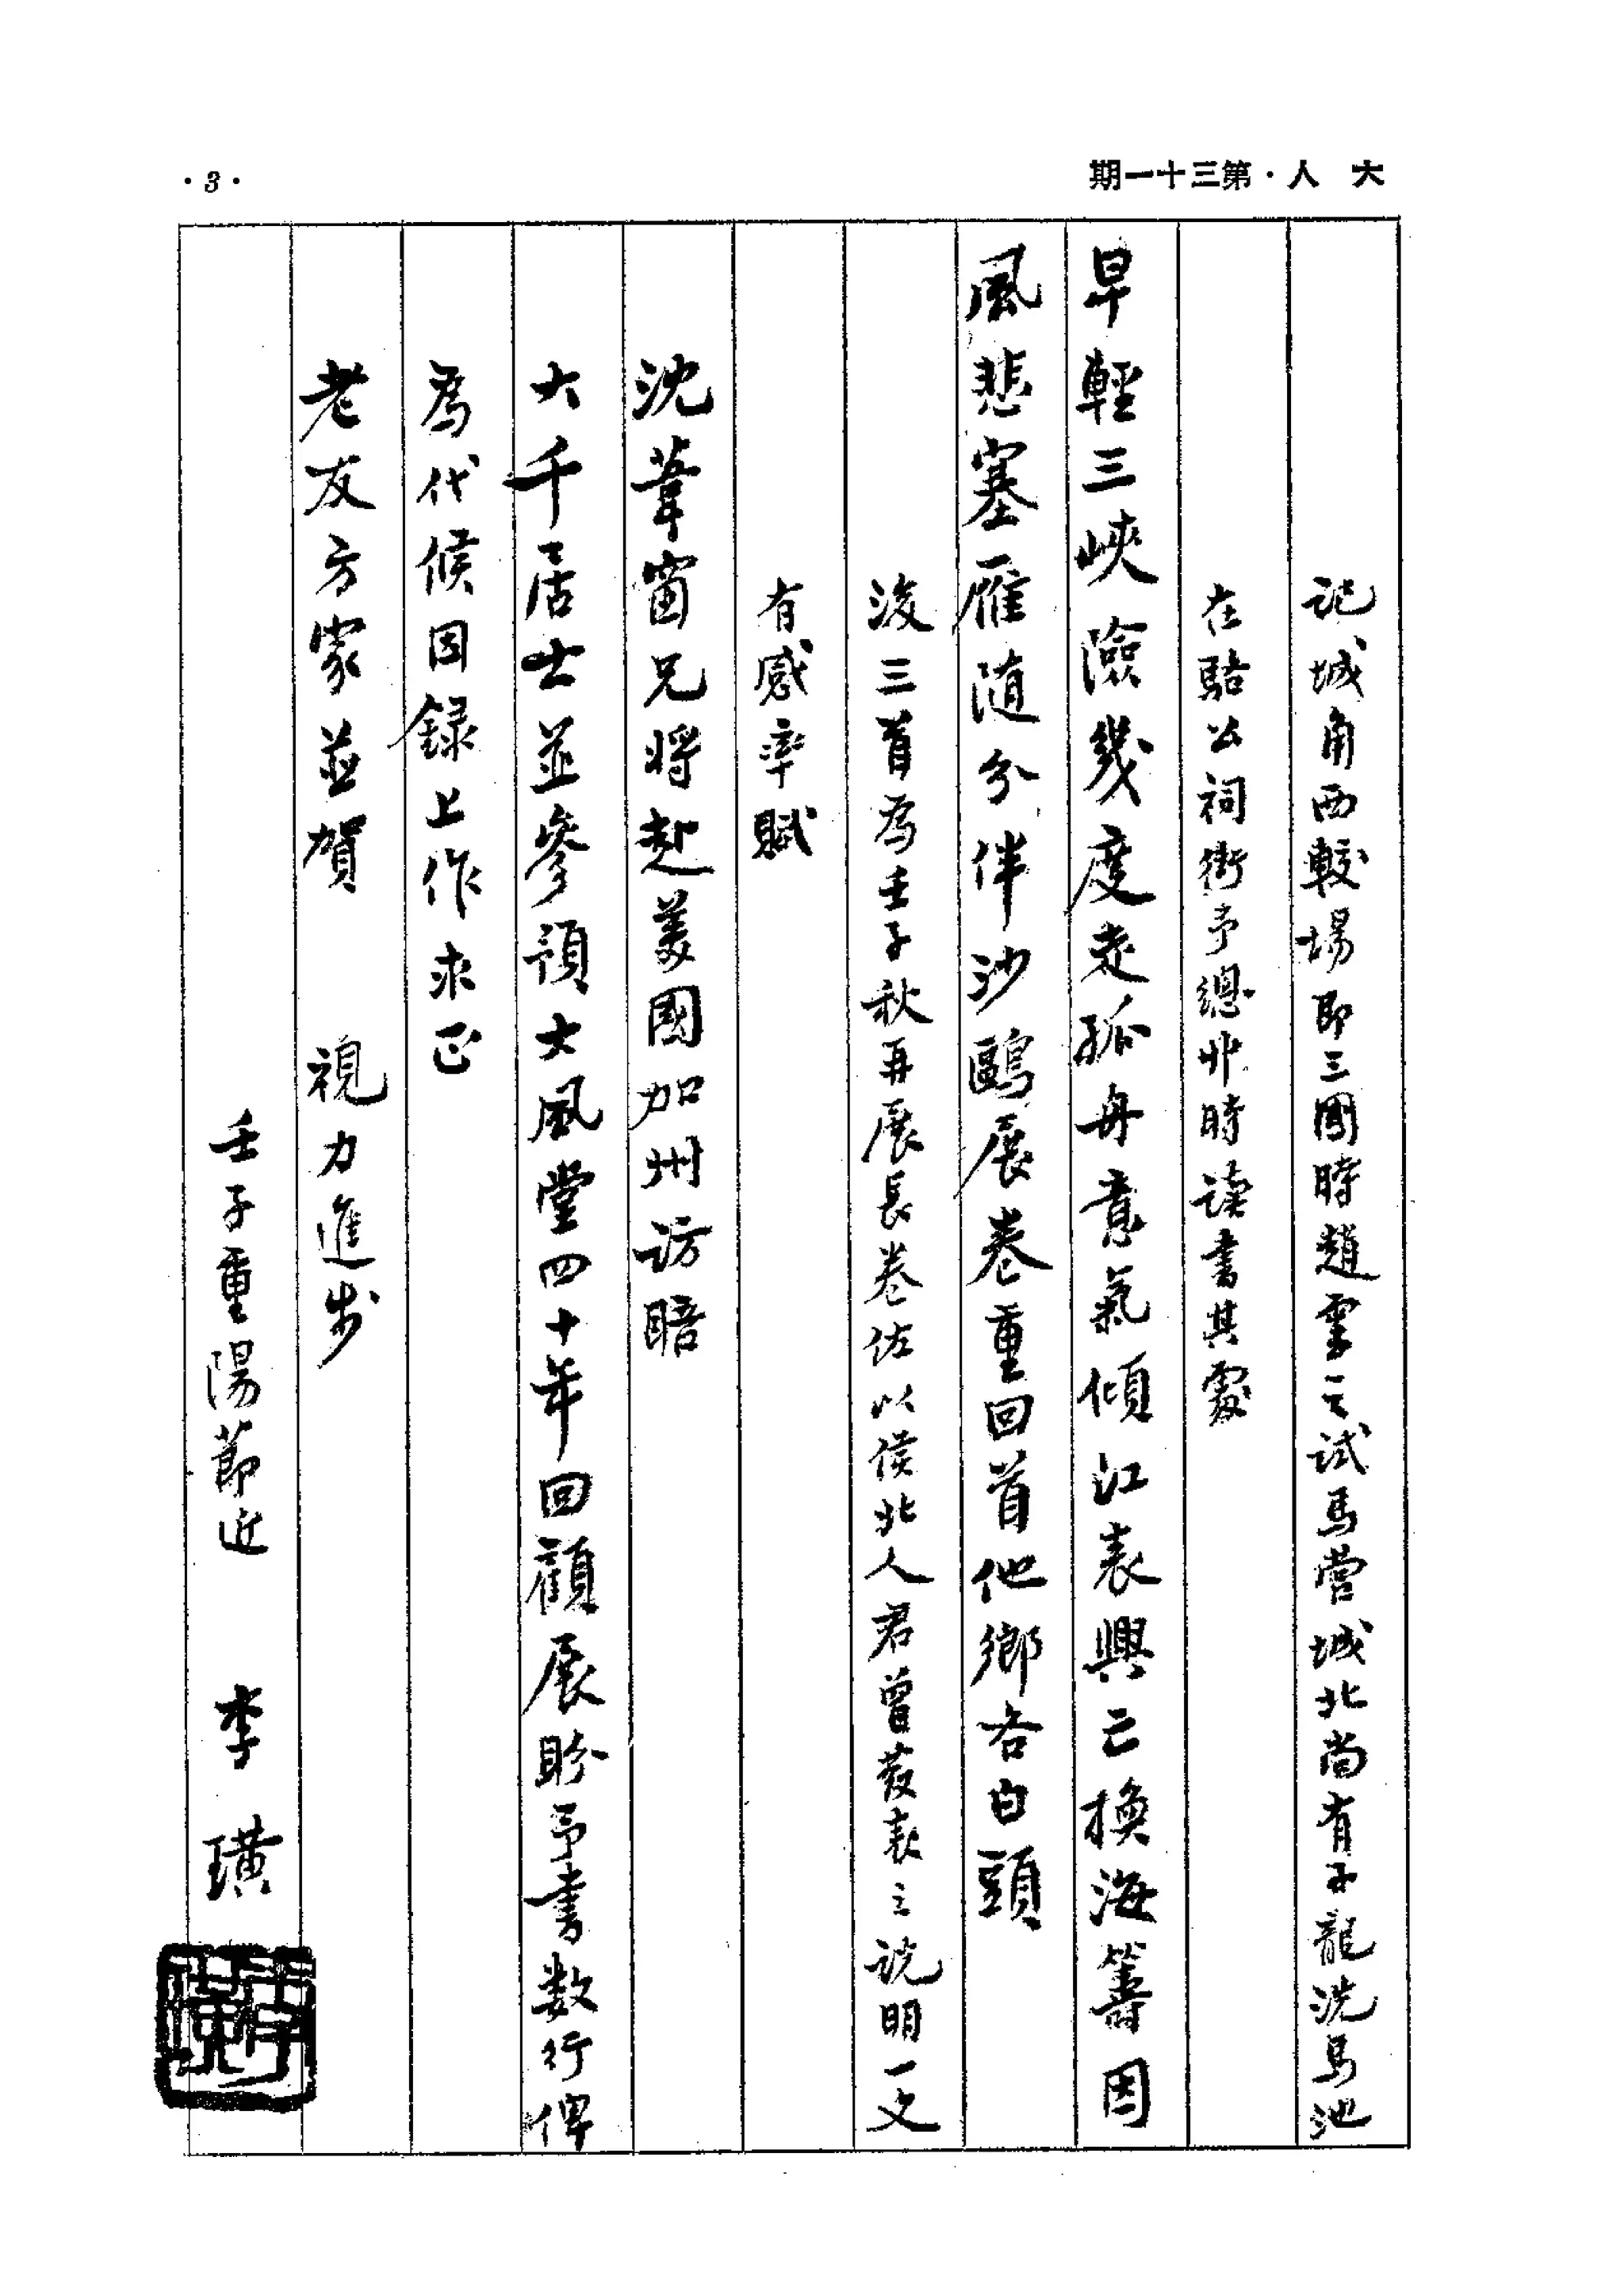 大人・第三十一期
・3・
記城角西較場即三國時趙雲之試馬營城北尚有子龍洗馬池
在駱公祠街予總丱時读書其處
早輕三峽險幾度走孤舟意氣傾江表興亡換海籌因
風悲塞雁随分伴沙鷗展卷重回首他鄉各白頭
後三首為壬子秋再展長卷佐以侯北人君曾發表之説明一文
有感率賦
沈葦窗兄将赴美國加州访晤
大千居士並參預大風堂四十年回顧展盼予書数行俾
為代候因録上作求正
老友方家並賀 視力進步
壬子重陽節近 李璜
李璜